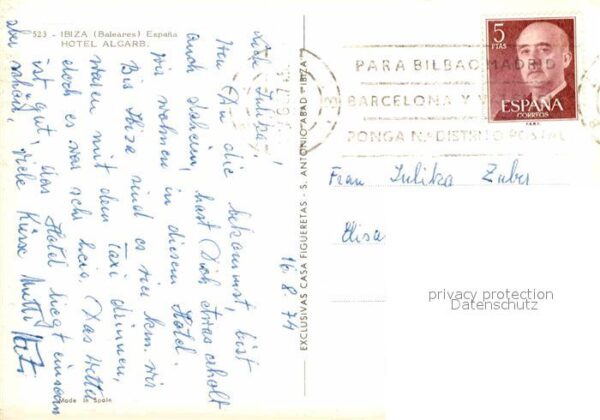 523 - IBIZA (Baleares) España
HOTEL ALGARB.
16.8.74
Liebe Julika!
Wenn Du die bekommst, bist
auch daheim, hast Dich etwas erholt
wir wohnen in diesem Hotel.
Bis Ibiza sind es vier km. wir
waren mit dem Taxi drinnen,
doch es war sehr heiss. Das Wetter
ist gut, das Hotel liegt einsam
aber schön, Viele Küsse Mutti
Made in Spain
EXCLUSIVAS CASA FIGUERETAS - S. ANTONIO ABAD - IBIZA
PARA BILBAO MADRID
BARCELONA Y
PONGA N. DISTRITO POSTAL
5
PTAS
ESPAÑA
CORREOS
Frau Julika Zuber
Elisa
privacy protection
Datenschutz